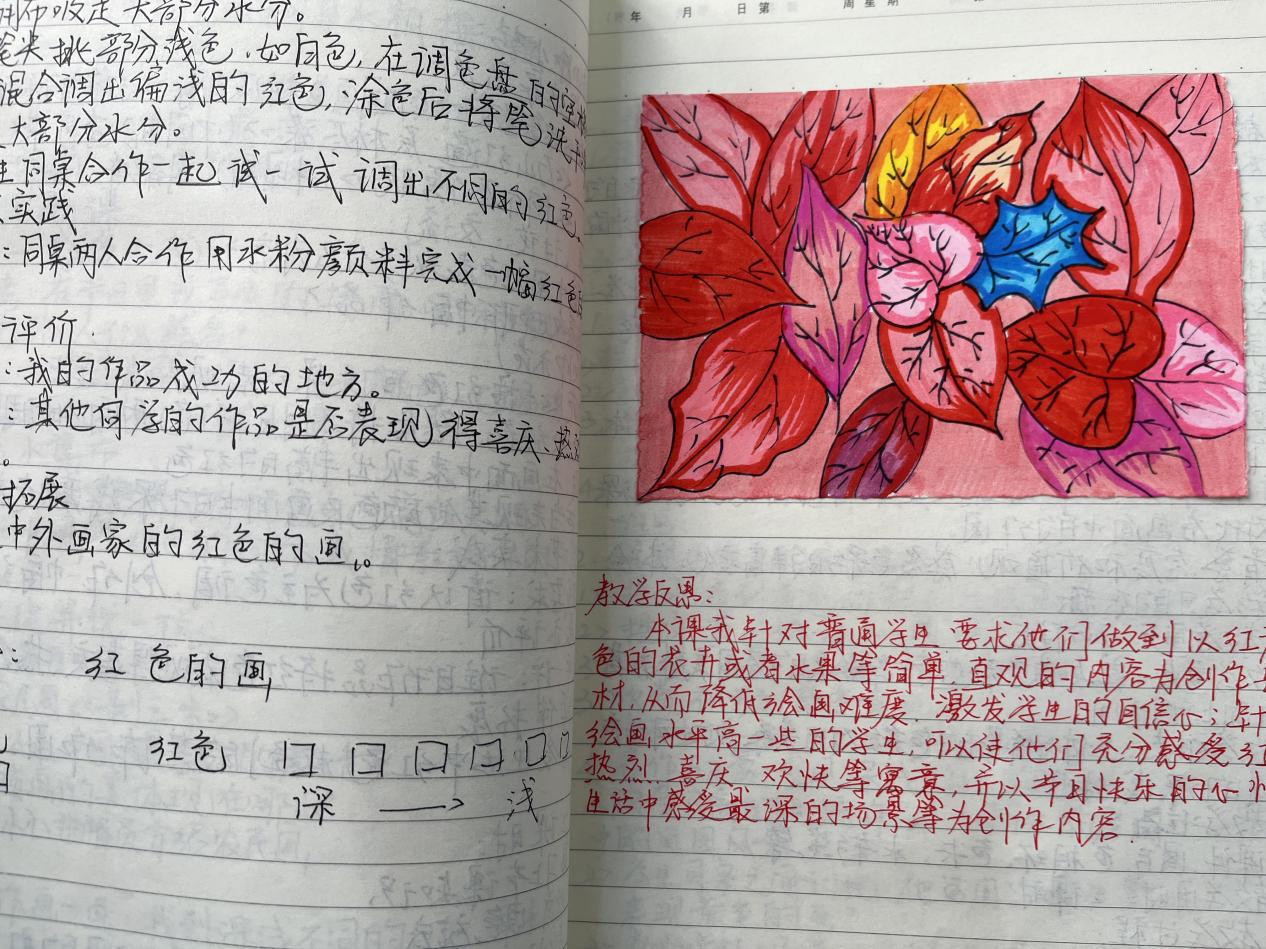 用布吸走大部分水分。
笔尖挑部分浅色,如白色,在调色盘的空
混合调出偏浅的红色,涂色后将笔洗干
大部分水分。
同桌合作一起试一试调出不同的红色。
实践
:同桌两人合作用水粉颜料完成一幅红色
评价.
:我的作品成功的地方。
:其他同学的作品是否表现得喜庆、热
。
拓展
中外画家的红色的画。
: 红色的画
红色 口 口 口 口 口 口
深 → 浅
年 月 日 第 周 星期
教学反思:
本课我针对普通学生要求他们做到以红
色的花卉或者水果等简单、直观的内容为创作
材,从而降低绘画难度.激发学生的自信心;针
绘画水平高一些的学生,可以使他们充分感受红
热烈、喜庆、欢快等寓意,并以节日快乐的心
生活中感受最深的场景等为创作内容.